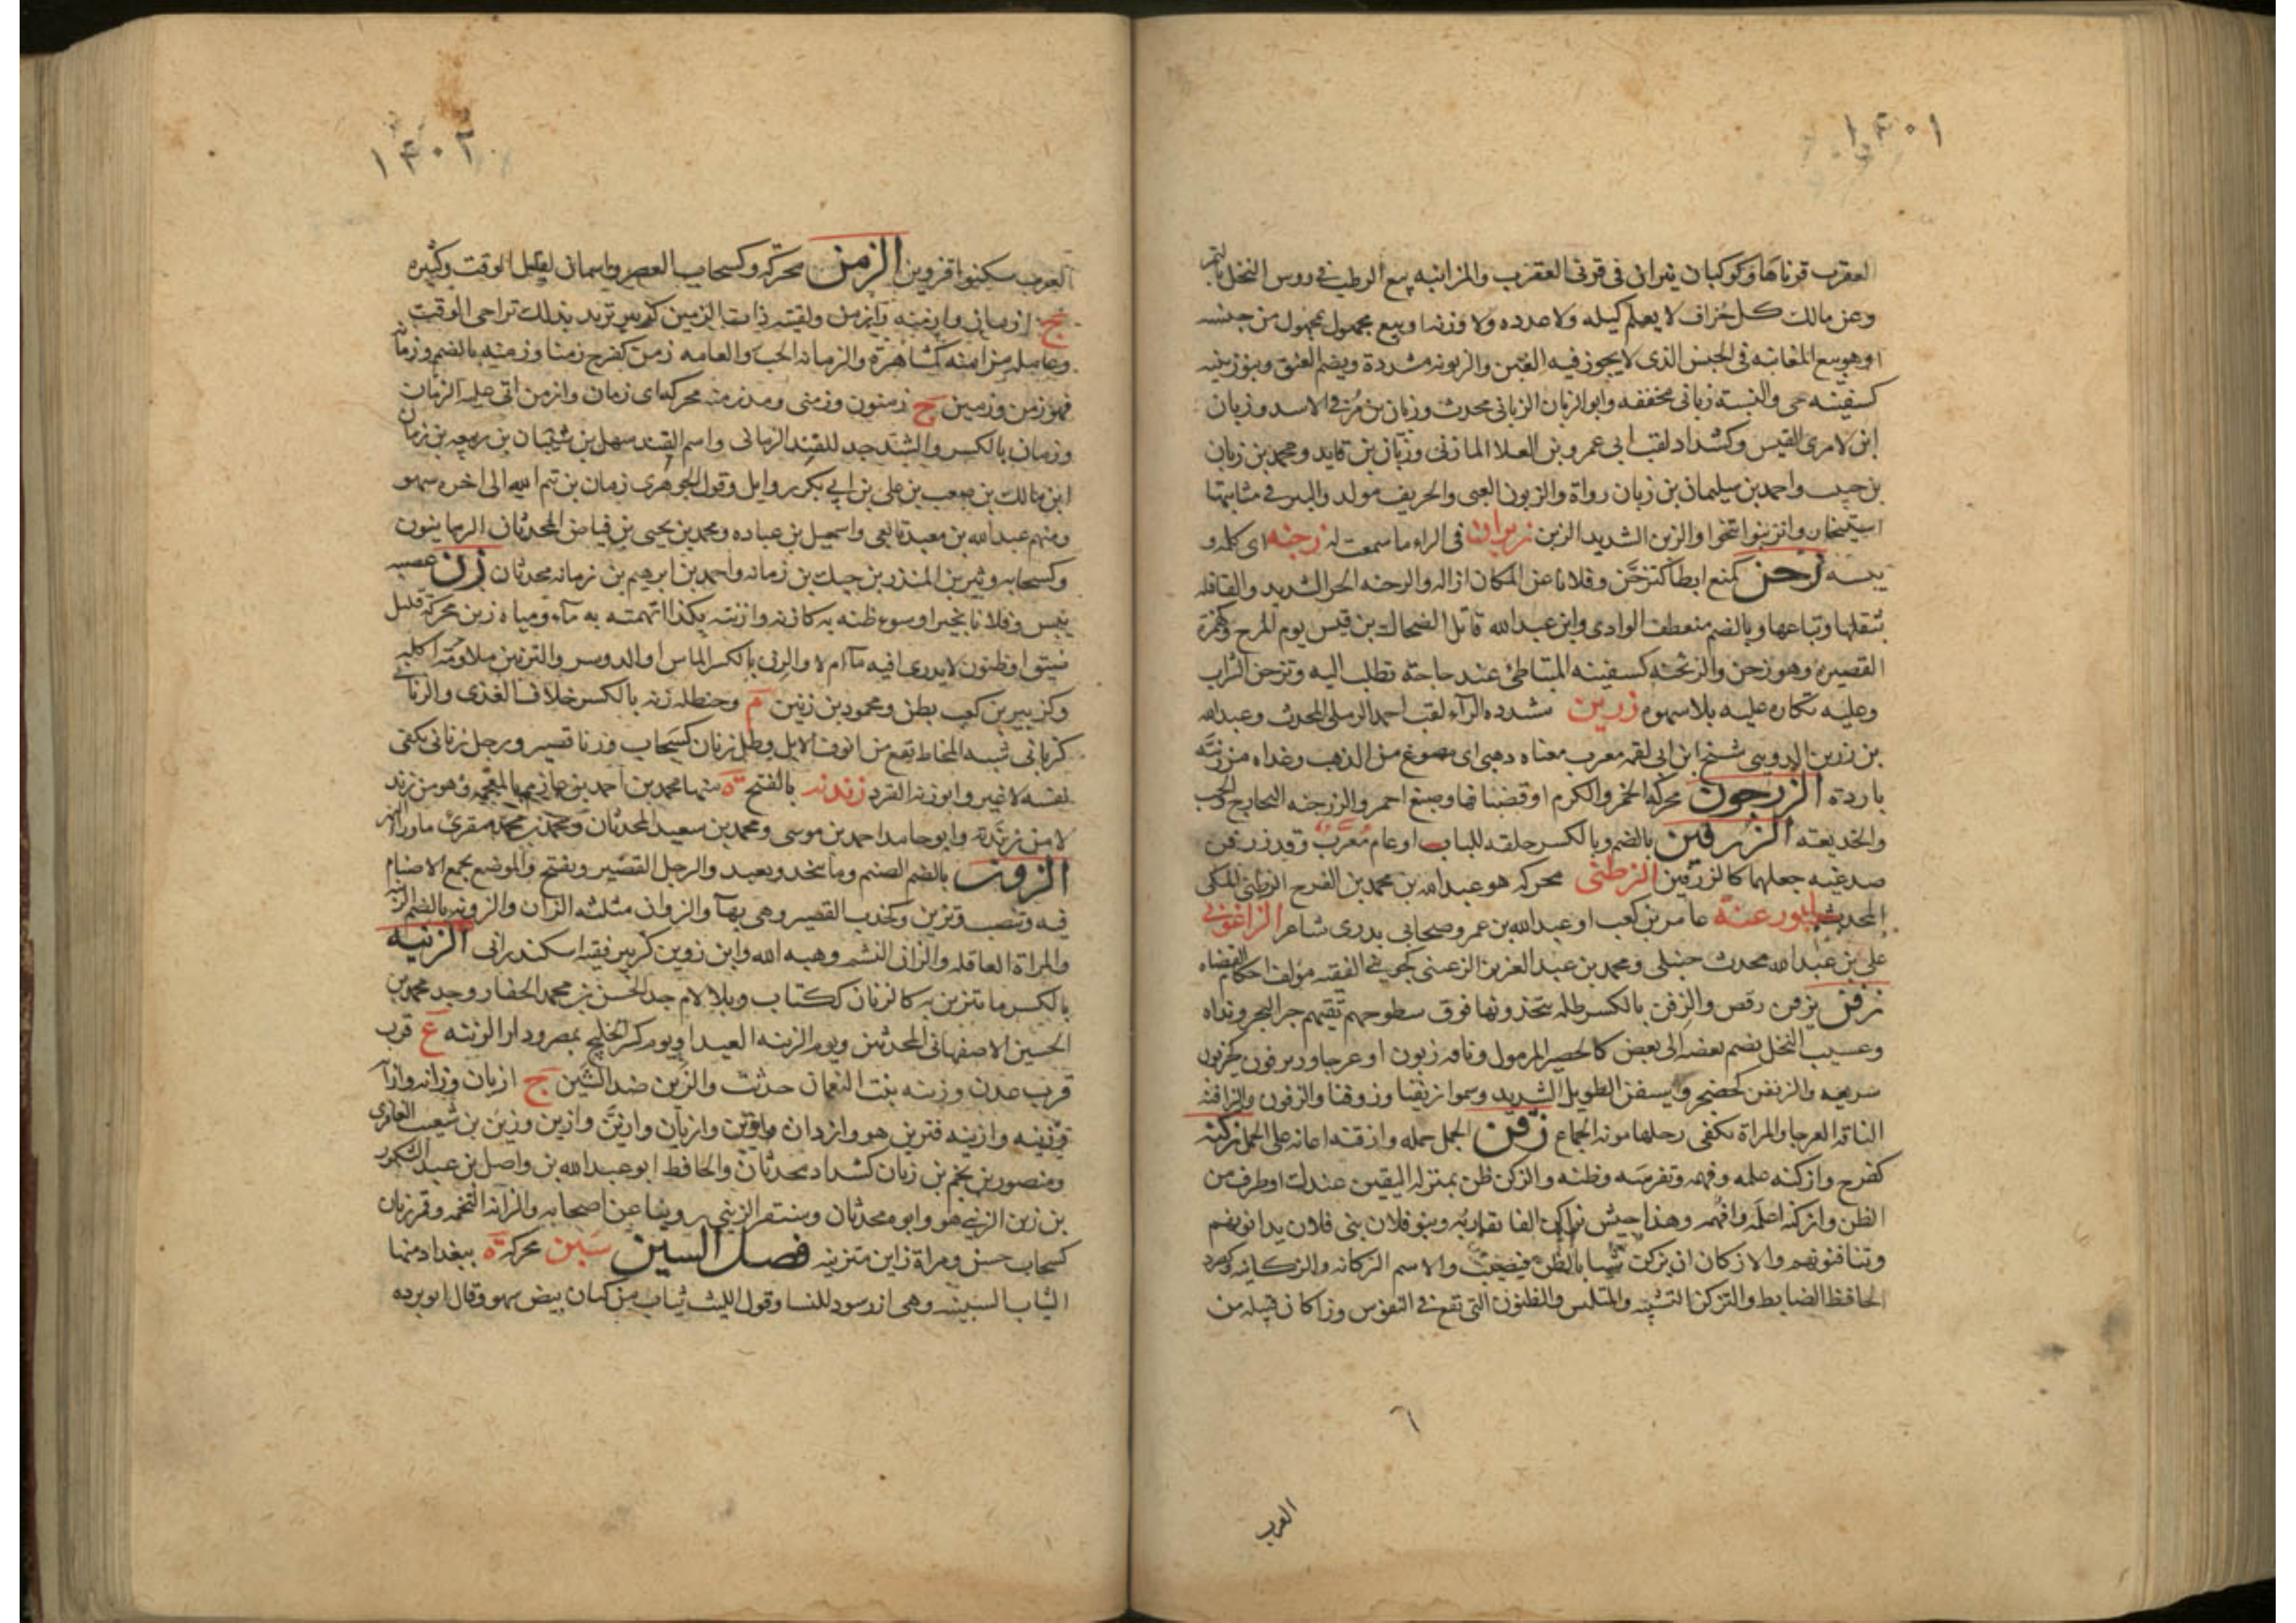 ١٤٠١
العقرب قرناها وكوكبان نيران فى قرنى العقرب والمزابنه بيع الرطب فى روس النخل بالتمر
وعن مالك كل جزاف لا يعلم كيله ولا عدده ولا وزنه او بيع مجهول بمجهول من جنسه
او هو بيع المغابنه فى الجنس الذى لا يجوز فيه الغبن والزبونه مشددة ويضم العنق وبنو زبينه
كسفينه حى والنسبة زبانى مخففه وابو الزبان الزبانى محدث وزبان بن مر فى الاسد وزبان
ابن لامرى القيس وكشداد لقب ابى عمرو بن العلا المازنى وزبان بن قايد ومحمد بن زبان
بن حبيب واحمد بن سليمان بن زبان رواة والزبون الغبى والحريف مولد والبير فى مثابتها
استيخار وانزبنوا تنحوا والزبن الشديد الزبن زبران فى الراء ما سمعت له زجنه اى كلمه و
زحن كمنع ابطا كتزحن وفلانا عن المكان ازاله والزحنه الحر الشديد والقافله
بثقلها وتباعها وبالضم منعطف الوادى وابن عبد الله قاتل الضحاك بن قيس يوم المرج وكهمزة
القصيره وهو زحن والزيحنه كسفينه المتباطئ عند حاجة تطلب اليه وتزحن الشراب
وعليه تكاره عليه بلا سهوه زرين مشدده الراء لقب احمد الرملى المحدث وعبد الله
بن زرين الدوينى شيخ ابن ابى لقمه معرب معناه ذهبى اى مصوغ من الذهب وغداه من زنة
باردة الزرجون محركه الخمر والكرم او قضبانها وصبغ احمر والزرجنه التخارج والخب
والخديعة الزرفين بالضم وبالكسر حلقه للباب او عام معرب وقد زرفن
صدغيه جعلهما كالزرفين الزطنى محركه هو عبد الله بن محمد بن الفرج الزطنى المكى
المحدث ابو زعنة عامر بن كعب او عبد الله بن عمرو صحابى بدرى شاعر الزاغونى
على بن عبد الله محدث حنبلى ومحمد بن عبد العزيز الزعنى كجهنى الفقيه مولف احكام القضاه
زفن يزفن رقص والزفن بالكسر ظله يتخذونها فوق سطوحهم تقيهم حر البحر ونداه
وعسيب النخل يضم بعضه الى بعض كالحصير المرمول وناقه زفون او عرجا وزيزفون كحيزبون
سريعه والزيفن كحضجر وسيفن الطويل الشديد وسموا زيفنا وزوفنا والزفون والزافنه
الناقه العرجا والمراة تكفى رجلها مونه الجماع زقن الحمل حمله وازقنه اعانه على الحمل زكنه
كفرح وازكنه علمه وفهمه وتفرسه وظنه والزكن ظن بمنزله اليقين عندك او طرف من
الظن وازكنه اعلمه وافهمه وهذا جيش يزاكن الفا يقاربه وبنو فلان بنى فلان يدانونهم
وتثافنونهم والازكان ان تزكن شيا بالظن فيصيب والاسم الزكانه والزكانيه وكصرد
الحافظ الضابط والتزكن التشبه والتلبس والظنون التى تقع فى النفوس وزاكان قبيله من
العرب
١٤٠٢
العرب سكنوا قزوين الزمن محركه وكسحاب العصر واسمان لقليل الوقت وكثيره
ج ازمان وازمنه وازمن ولقيته ذات الزمين كزبير تريد بذلك تراخى الوقت
وعامله مزامنه كمشاهرة والزمانه الحب والعامه زمن كفرح زمنا وزمنه بالضم وزمانه
فهو زمن وزمين ج زمنون وزمنى ومذ زمنه محركه اى زمان وازمن اتى عليه الزمان
وزمان بالكسر والشد جد للفند الزمانى واسم الفند سهل بن شيبان بن ربيعه بن زمان
ابن مالك بن صعب بن على بن ابى بكر بن وايل وقول الجوهرى زمان بن تيم الله الى اخره سهو
ومنهم عبد الله بن معبد تابعى واسمعيل بن عباده ومحمد بن يحيى بن فياض المحدثان الزمانيون
وكسحابه وثير بن المنذر بن حيك بن زمانه واحمد بن ابرهيم بن زمانه محدثان زن عصبه
يبس وفلانا بخير او سوء ظنه به كازنه وازننته بكذا اتهمته به ماء ومياه زنن محركه قليل
ضيق او ظنون لا يدرى افيه ماء ام لا والزن بالكسر الماش او الدوسر والتزنين ملاومة اكله
وكزبير بن كعب بطن ومحمود بن زنين م وحنطه زنه بالكسر خلاف الغذى والزنانى
كزبانى شبه المخاط يقع من انوف الابل وظل زنان كسحاب وزنا قصير ورجل زنانى يكفى
نفسه لا غير وابو زنه القرد زندنه بالفتح ة منها محمد بن احمد بن حازم بالمعجمه وهو من زند
لا من زندنة وابو حامد احمد بن موسى ومحمد بن سعيد المحدثان ومحمد بن محمد مقرئ ماوراء النهر
الزون بالضم الصنم وما يتخذ ويعبد والرجل القصير ويفتح والموضع يجمع الاصنام
فيه وتنصب وتزين وكخدب القصير وهى بهاء والزوان مثلثه الزان والزونه بالضم الزينه
والمراة العاقله والزان النشم وهبه الله وابن زوين كزبير فقيه اسكندرانى الزينه
بالكسر ما يتزين به كالزيان ككتاب وبلا لام جد الحسن بن محمد الحفار وجد محمد بن
الحسين الاصفهانى المحدثين ويوم الزينه العيد او يوم كسر الخليج بمصر ودار الزينه ع قرب
قرب عدن وزينه بنت النعمان حدثت والزين ضد الشين ج ازيان وزانه وازانه
وزينه وازينه فتزين هو وازدان وازين وازيان وازين وازين وزين بن شعيب المعافرى
ومنصور بن نجم بن زيان كشداد محدثان والحافظ ابو عبد الله بن واصل بن عبد الشكور
بن زين الزينى هو وابوه محدثان وسنقر الزينى روينا عن اصحابه والزانه التخمه وقمر زيان
كسحاب حسن ومراة زاين متزينه فصل السين سبن محركه ة ببغداد منها
الثياب السبنيه وهى ازر سود للنسا وقول الليث ثياب من كتان بيض سهو وقال ابو برده